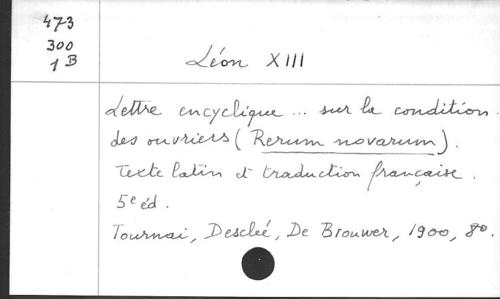 473
300
1 B
Léon XIII
Lettre encyclique ... sur la condition
des ouvriers (Rerum novarum).
Texte latin et traduction française.
5e éd.
Tournai, Desclée, De Brouwer, 1900, 8o.